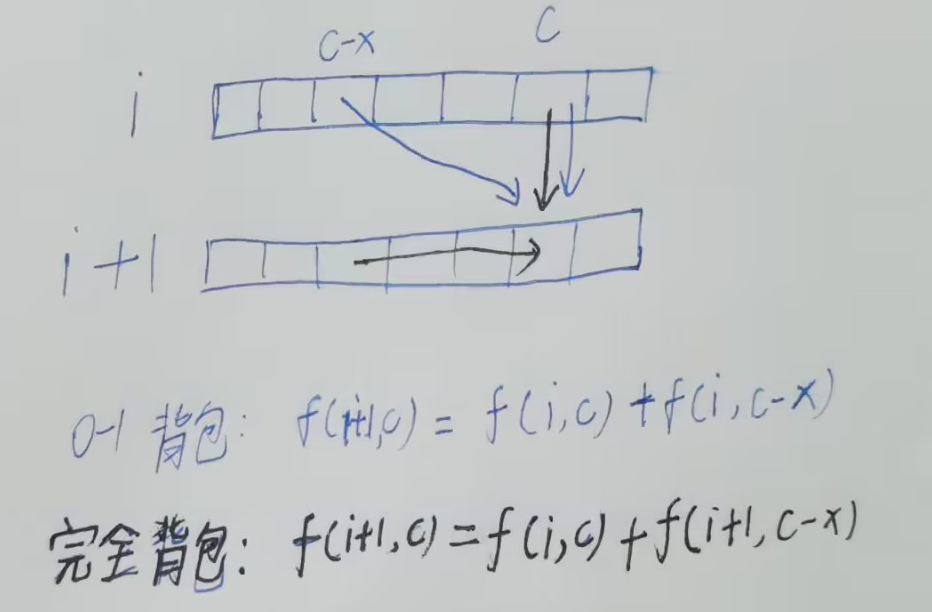 c-x c
i
i+1
0-1 背包: f(i+1,c) = f(i,c) + f(i,c-x)
完全背包: f(i+1,c) = f(i,c) + f(i+1,c-x)